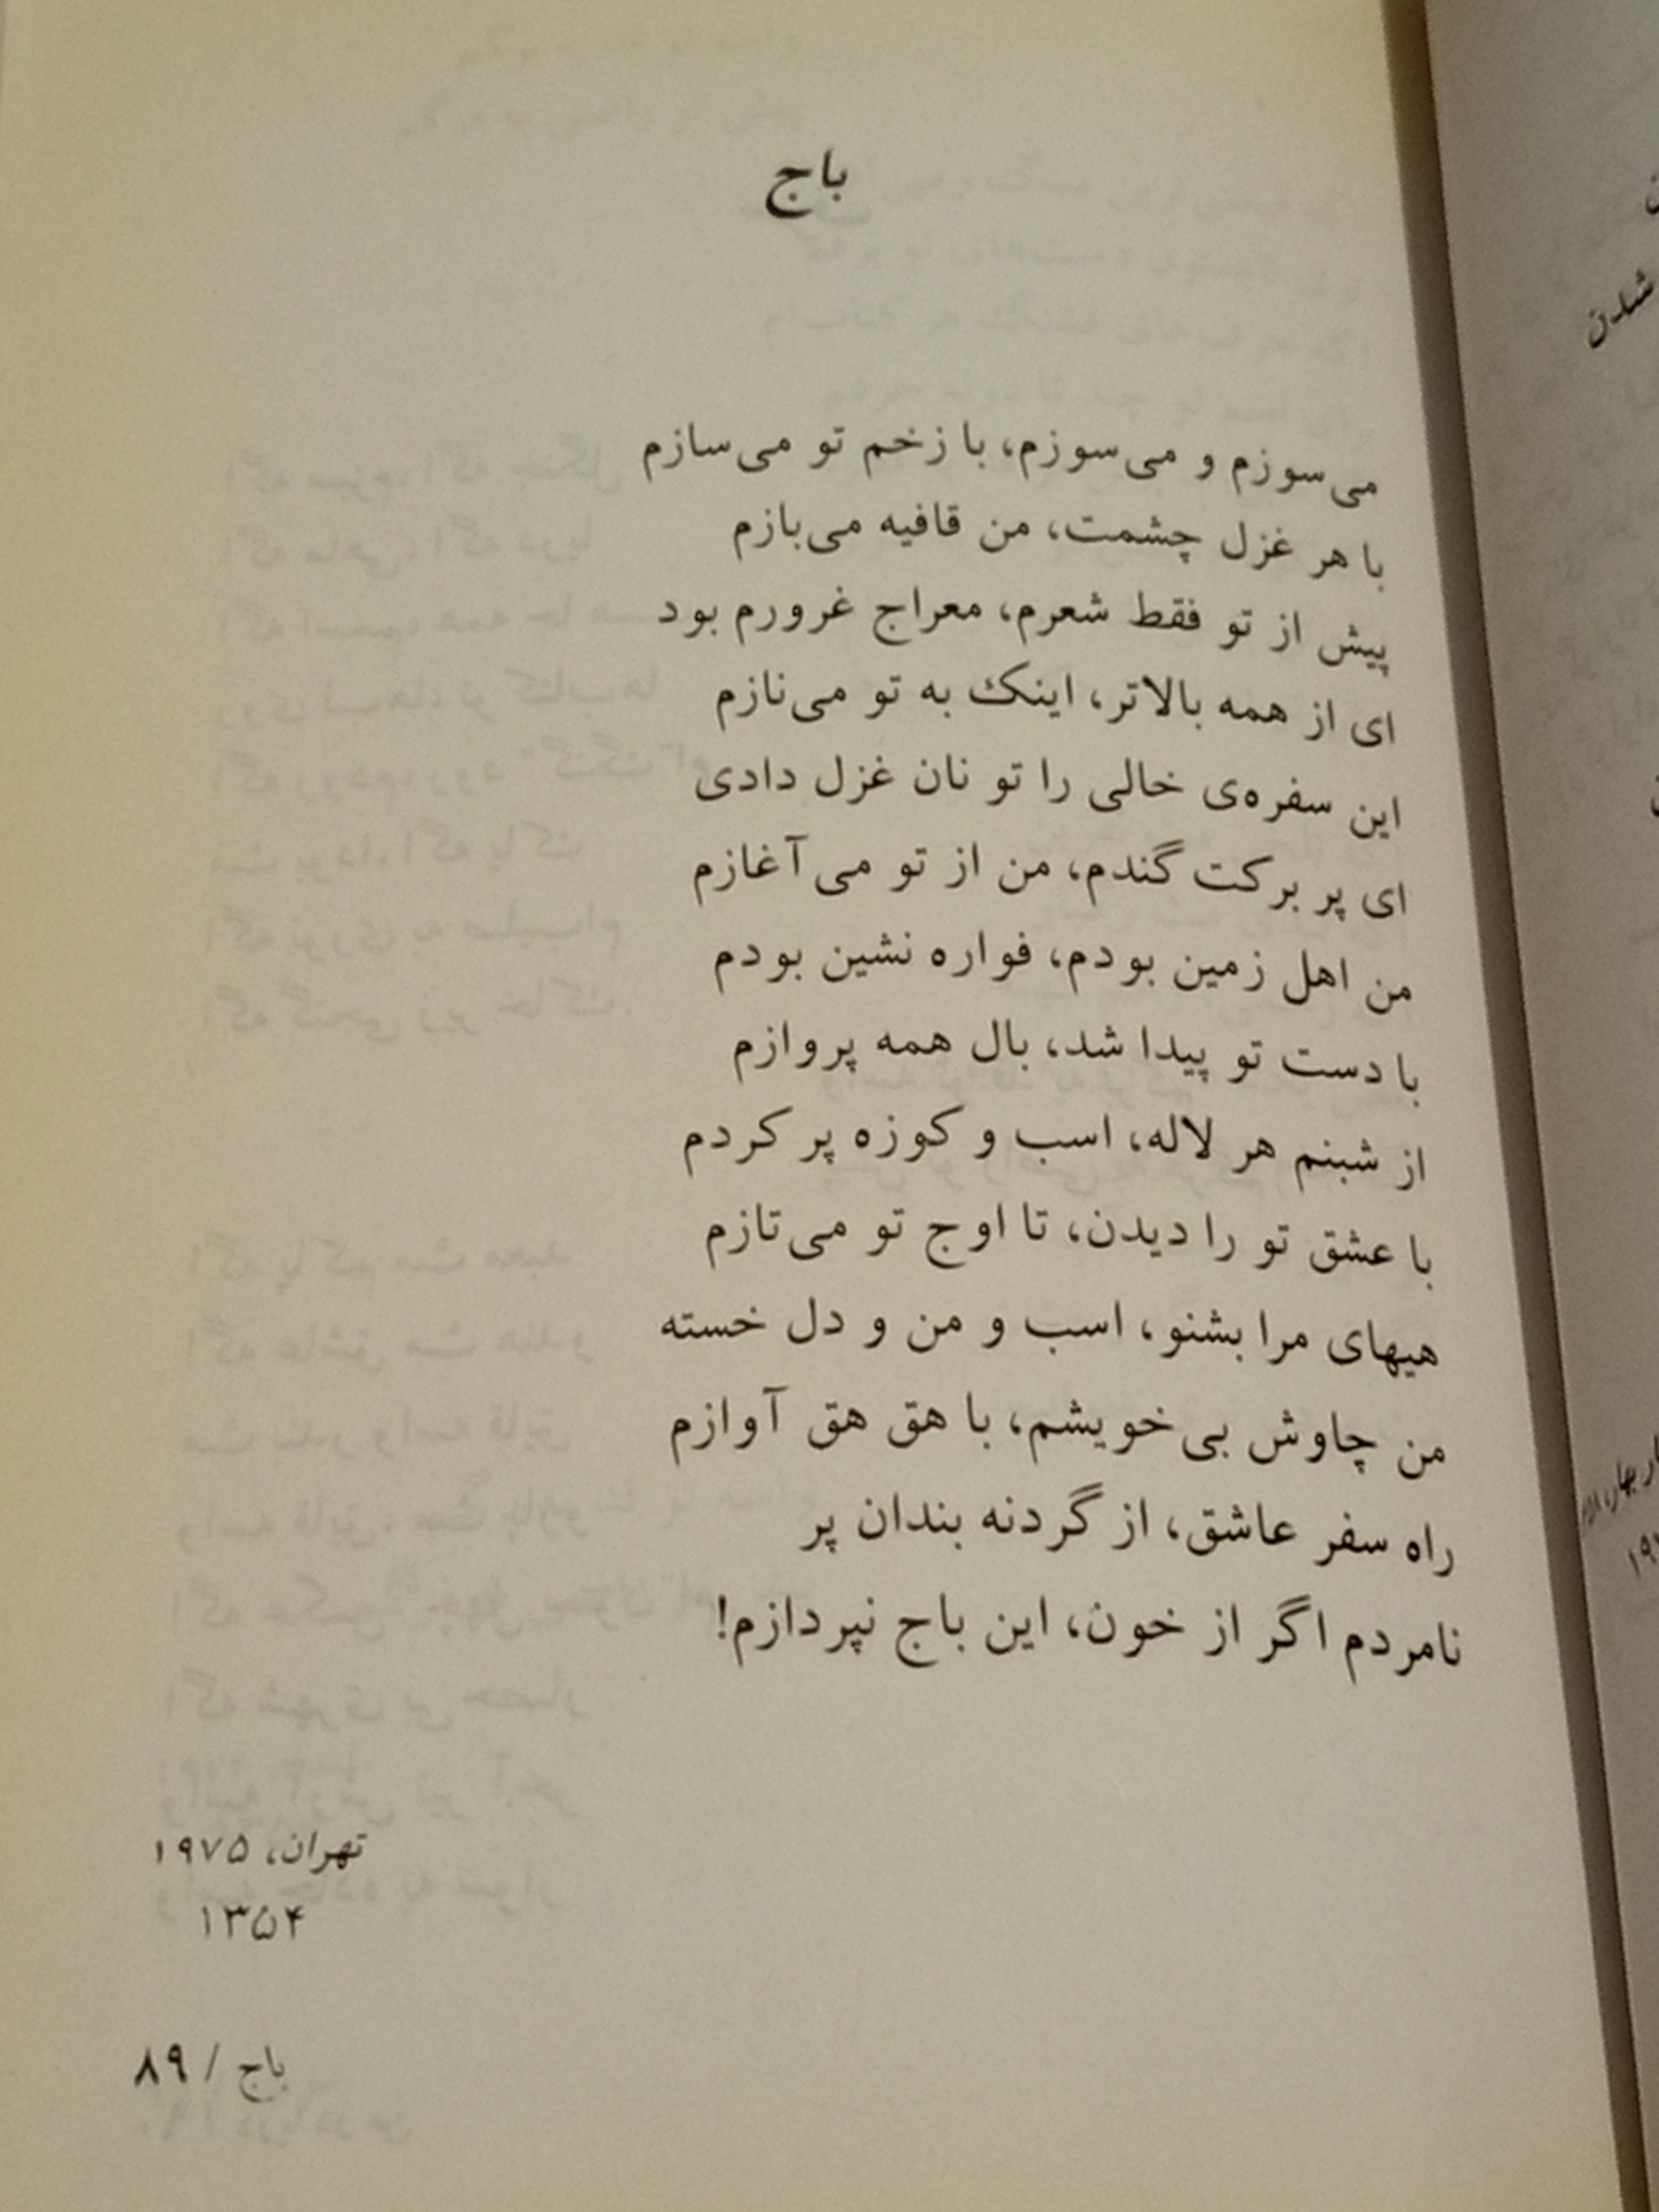 باج
می‌سوزم و می‌سوزم، با زخم تو می‌سازم
با هر غزل چشمت، من قافیه می‌بازم
پیش از تو فقط شعرم، معراج غرورم بود
ای از همه بالاتر، اینک به تو می‌نازم
این سفره‌ی خالی را تو نان غزل دادی
ای پر برکت گندم، من از تو می‌آغازم
من اهل زمین بودم، فواره نشین بودم
با دست تو پیدا شد، بال همه پروازم
از شبنم هر لاله، اسب و کوزه پر کردم
با عشق تو را دیدن، تا اوج تو می‌تازم
هیهای مرا بشنو، اسب و من و دل خسته
من چاوش بی‌خویشم، با هق هق آوازم
راه سفر عاشق، از گردنه بندان پر
نامردم اگر از خون، این باج نپردازم!
تهران، ۱۹۷۵
۱۳۵۴
باج / ۸۹
شدن